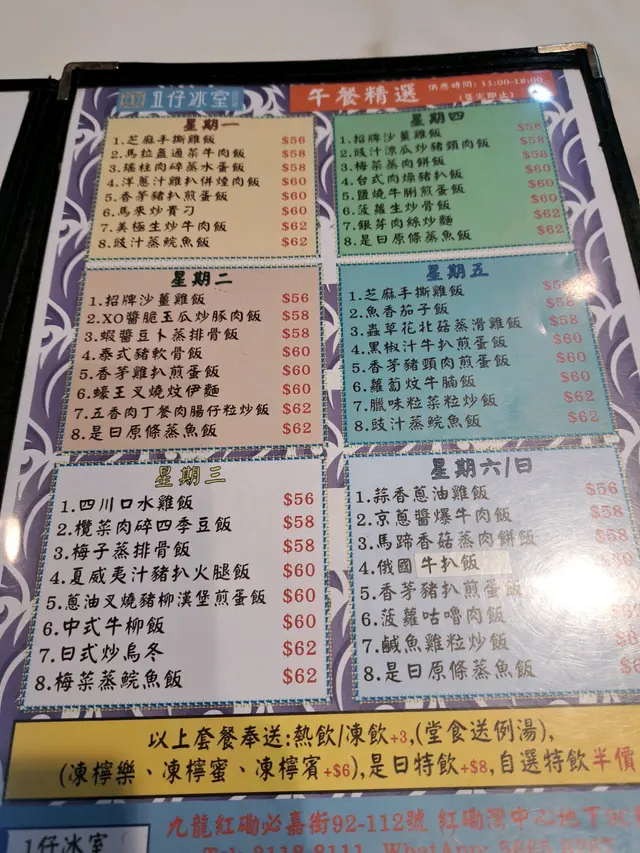 1仔冰室
午餐精選
供應時間: 11:00-18:00
(售完即止)
星期一
1.芝麻手撕雞飯 $56
2.馬拉盞通菜牛肉飯 $58
3.瑤柱肉碎蒸水蛋飯 $58
4.洋蔥汁雞扒併煙肉飯 $60
5.香茅豬扒煎蛋飯 $60
6.馬來炒貴刁 $60
7.美極生炒牛肉飯 $62
8.豉汁蒸鯇魚飯 $62
星期二
1.招牌沙薑雞飯 $56
2.XO醬脆玉瓜炒豚肉飯 $58
3.蝦醬豆卜蒸排骨飯 $58
4.泰式豬軟骨飯 $60
5.香茅雞扒煎蛋飯 $60
6.蠔王叉燒炆伊麵 $60
7.五香肉丁餐肉腸仔粒炒飯 $62
8.是日原條蒸魚飯 $62
星期三
1.四川口水雞飯 $56
2.欖菜肉碎四季豆飯 $58
3.梅子蒸排骨飯 $58
4.夏威夷汁豬扒火腿飯 $60
5.蔥油叉燒豬柳漢堡煎蛋飯 $60
6.中式牛柳飯 $60
7.日式炒烏冬 $62
8.梅菜蒸鯇魚飯 $62
星期四
1.招牌沙薑雞飯 $56
2.豉汁涼瓜炒豬頸肉飯 $58
3.梅菜蒸肉餅飯 $58
4.台式肉燥豬扒飯 $60
5.鹽燒牛脷煎蛋飯 $60
6.菠蘿生炒骨飯 $60
7.銀芽肉絲炒麵 $62
8.是日原條蒸魚飯 $62
星期五
1.芝麻手撕雞飯
2.魚香茄子飯 $58
3.蟲草花北菇蒸滑雞飯 $58
4.黑椒汁牛扒煎蛋飯 $60
5.香茅豬頸肉煎蛋飯 $60
6.蘿蔔炆牛腩飯 $60
7.臘味粒菜粒炒飯 $62
8.豉汁蒸鯇魚飯 $62
星期六/日
1.蒜香蔥油雞飯 $56
2.京蔥醬爆牛肉飯 $58
3.馬蹄香菇蒸肉餅飯 $58
4.俄國牛扒飯
5.香茅豬扒煎蛋飯
6.菠蘿咕嚕肉飯
7.鹹魚雞粒炒飯
8.是日原條蒸魚飯
以上套餐奉送:熱飲/凍飲+3,(堂食送例湯),
(凍檸樂、凍檸蜜、凍檸賓+$6),是日特飲+$8,自選特飲半價
九龍紅磡必嘉街92-112號 紅磡灣中心地下
1仔冰室
Tel: 3118 8111